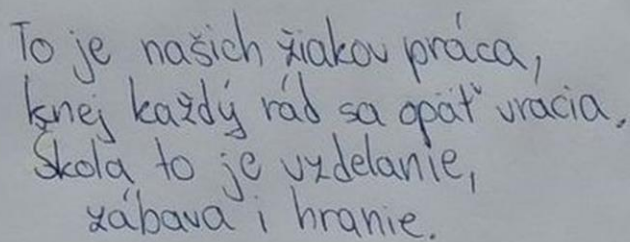 To je našich žiakov práca,
knej každý rád sa opäť vracia.
Škola to je vzdelanie,
zábava i hranie.